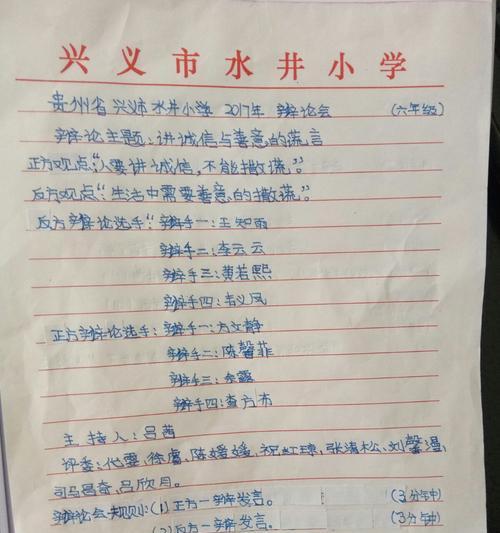 兴义市水井小学
贵州省兴义市水井小学2017年 辩论会 (六年级)
辩论主题:讲诚信与善意的谎言
正方观点:“人要讲诚信,不能撒谎”。
反方观点:“生活中需要善意的撒谎”。
反方辩论选手:辩手一:王知雨
辩手二:李云云
辩手三:黄若熙
辩手四:韦义凤
正方辩论选手:辩手一:方文静
辩手二:陈馨菲
辩手三:余露
辩手四:查方布
主持人:吕茜
评委:代雯,徐睿,陈媛媛,祝虹琼,张清松,刘馨漫,
司马昌奇,吕欣月。
辩论会规则:(1)正方一辩发言。 (3分钟)
(2)反方一辩发言。 (3分钟)